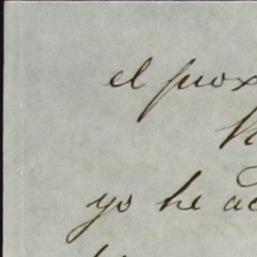 el prox
yo he ac